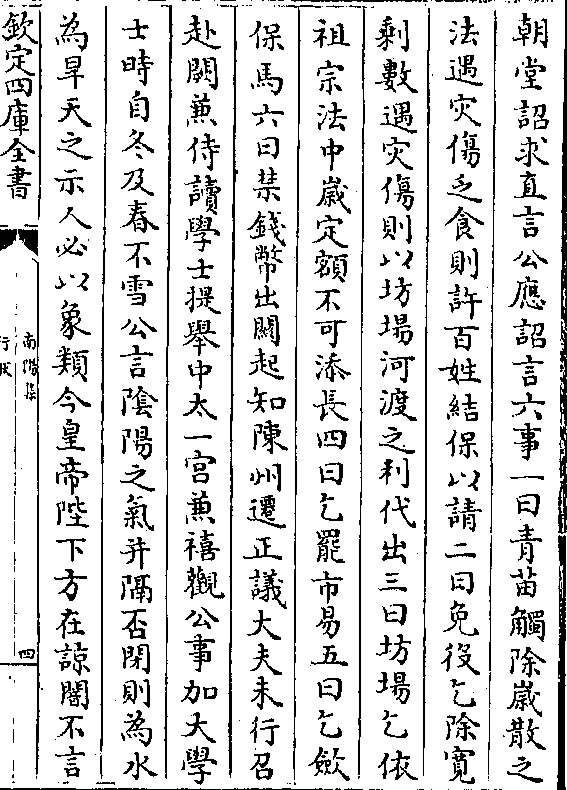 朝堂詔求直言公應詔言六事一曰青苗觸除歲散之
法遇灾傷乏食則許百姓結保以請二曰免役乞除寛
剩數遇灾傷則以坊場河渡之利代出三曰坊場乞依
祖宗法中歲定額不可添長四曰乞罷市易五曰乞斂
保馬六曰禁錢幣出闗起知陳州遷正議大夫未行召
赴闕兼侍讀學士提舉中太一宮兼禧觀公事加大學
士時自冬及春不雪公言隂陽之氣并隔否閉則為水
為旱天之示人必以象類今皇帝陛下方在諒闇不言
欽定四庫全書
四